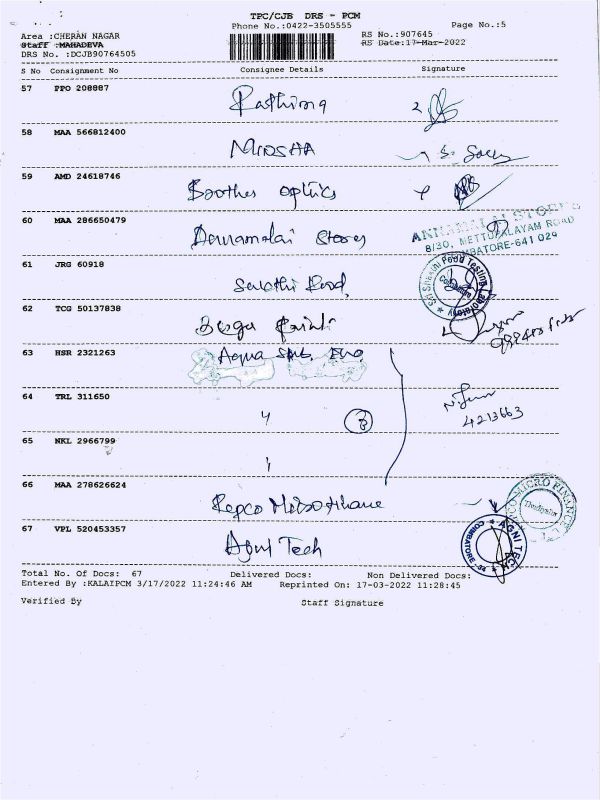 TPC/CJB DRS - PCM
Phone No.:0422-3505555
Page No.:5
Area :CHERAN NAGAR
RS No.:907645
Staff :MAHADEVA
RS Date:17-Mar-2022
DRS No. :DCJB90764505
S No Consignment No Consignee Details Signature
57 PPO 208887
58 MAA 566812400
59 AMD 24618746 optics
60 MAA 286650479 Stores
ANNAMALAI STORES
8/30, METTUPALAYAM ROAD
COIMBATORE-641 029
61 JRG 60918
Sri Shakthi Food Testing Laboratory
Coimbatore
62 TCG 50137838
63 HSR 2321263 Aqua Sub. Eng
64 TRL 311650 " 3
4213663
65 NKL 2966799 "
66 MAA 278626624 Repco
MICRO FINANCE
67 VPL 520453357 Agni Tech
AGNI TECH
COIMBATORE
Total No. Of Docs: 67 Delivered Docs: Non Delivered Docs:
Entered By :KALAIPCM 3/17/2022 11:24:46 AM Reprinted On: 17-03-2022 11:28:45
Verified By Staff Signature